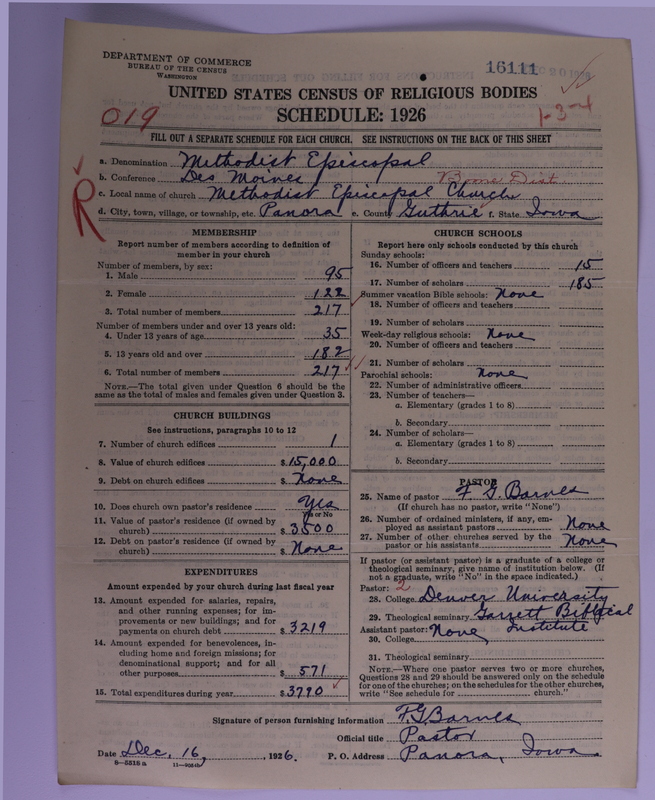 DEPARTMENT OF COMMERCE
BUREAU OF THE CENSUS
WASHINGTON
16111
UNITED STATES CENSUS OF RELIGIOUS BODIES
SCHEDULE: 1926
019
1-3-4
FILL OUT A SEPARATE SCHEDULE FOR EACH CHURCH. SEE INSTRUCTIONS ON THE BACK OF THIS SHEET
R
a. Denomination Methodist Episcopal
b. Conference Des Moines Boone Dist
c. Local name of church Methodist Episcopal Church
d. City, town, village, or township, etc. Panora e. County Guthrie f. State Iowa
MEMBERSHIP
Report number of members according to definition of
member in your church
Number of members, by sex:
1. Male 95
2. Female 122
3. Total number of members 217
Number of members under and over 13 years old:
4. Under 13 years of age 35
5. 13 years old and over 182
6. Total number of members 217
NOTE.—The total given under Question 6 should be the
same as the total of males and females given under Question 3.
CHURCH BUILDINGS
See instructions, paragraphs 10 to 12
7. Number of church edifices 1
8. Value of church edifices $15,000
9. Debt on church edifices $ None
10. Does church own pastor's residence Yes
Yes or No
11. Value of pastor's residence (if owned by
church) $3500
12. Debt on pastor's residence (if owned by
church) $ None
EXPENDITURES
Amount expended by your church during last fiscal year
13. Amount expended for salaries, repairs,
and other running expenses; for im-
provements or new buildings; and for
payments on church debt $ 3219
14. Amount expended for benevolences, in-
cluding home and foreign missions; for
denominational support; and for all
other purposes $ 571
15. Total expenditures during year $3790
CHURCH SCHOOLS
Report here only schools conducted by this church
Sunday schools:
16. Number of officers and teachers 15
17. Number of scholars 185
Summer vacation Bible schools: None
18. Number of officers and teachers
19. Number of scholars
Week-day religious schools: None
20. Number of officers and teachers
21. Number of scholars
Parochial schools: None
22. Number of administrative officers
23. Number of teachers—
a. Elementary (grades 1 to 8)
b. Secondary
24. Number of scholars—
a. Elementary (grades 1 to 8)
b. Secondary
PASTOR
25. Name of pastor F G Barnes
(If church has no pastor, write "None")
26. Number of ordained ministers, if any, em-
ployed as assistant pastors None
27. Number of other churches served by the
pastor or his assistants None
If pastor (or assistant pastor) is a graduate of a college or
theological seminary, give name of institution below. (If
not a graduate, write "No" in the space indicated.)
Pastor: 2
28. College Denver University
29. Theological seminary Garrett Biblical
Assistant pastor: None Institute
30. College
31. Theological seminary
NOTE.—Where one pastor serves two or more churches,
Questions 28 and 29 should be answered only on the schedule
for one of the churches; on the schedules for the other churches,
write "See schedule for church."
Signature of person furnishing information F. G. Barnes
Official title Pastor
Date Dec, 16, 1926. P. O. Address Panora, Iowa
8—5518a